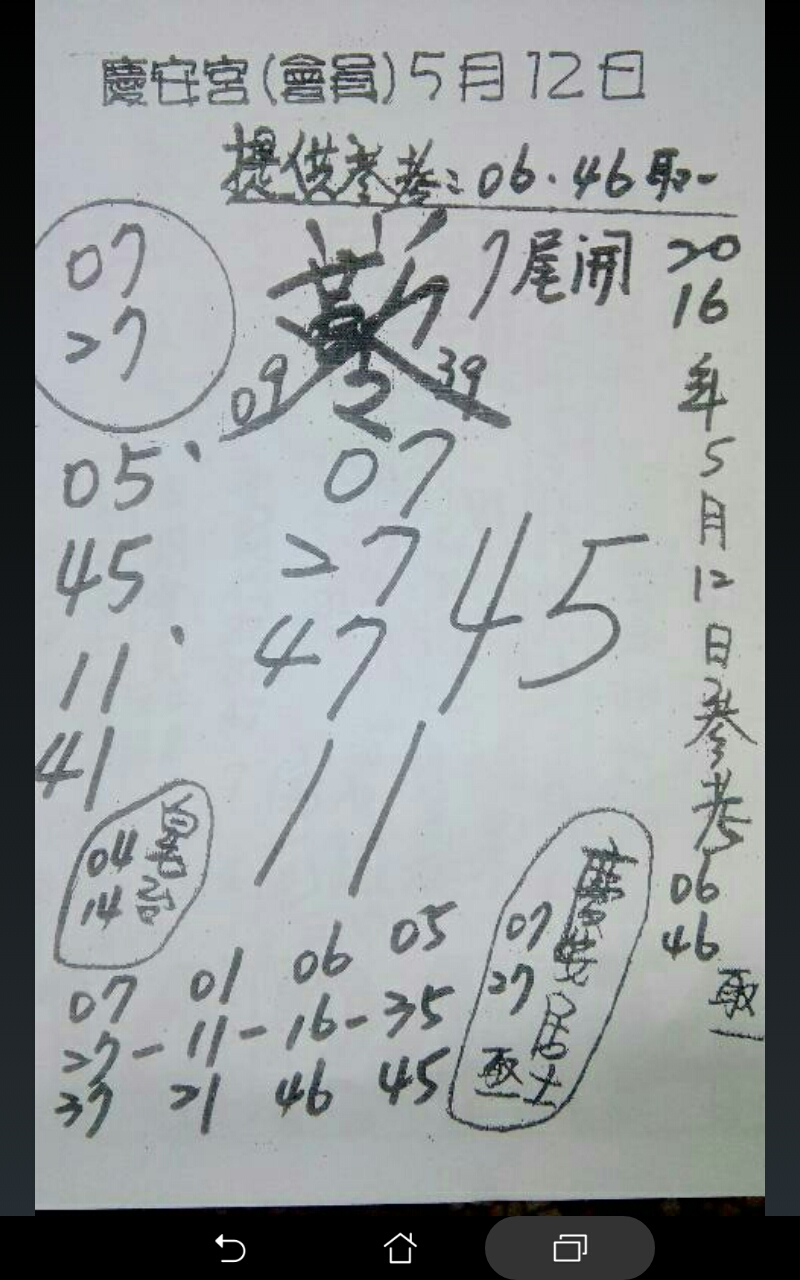 慶安宮(會員)5月12日
提供參考:06.46取一
07
27
7尾開
09
39
05
45
11
41
07
27
47
45
11
2016年5月12日參考
06
46
取一
04
14
07 01 06 05
27-11-16-35
37 21 46 45
慶安居士
07
27
取一